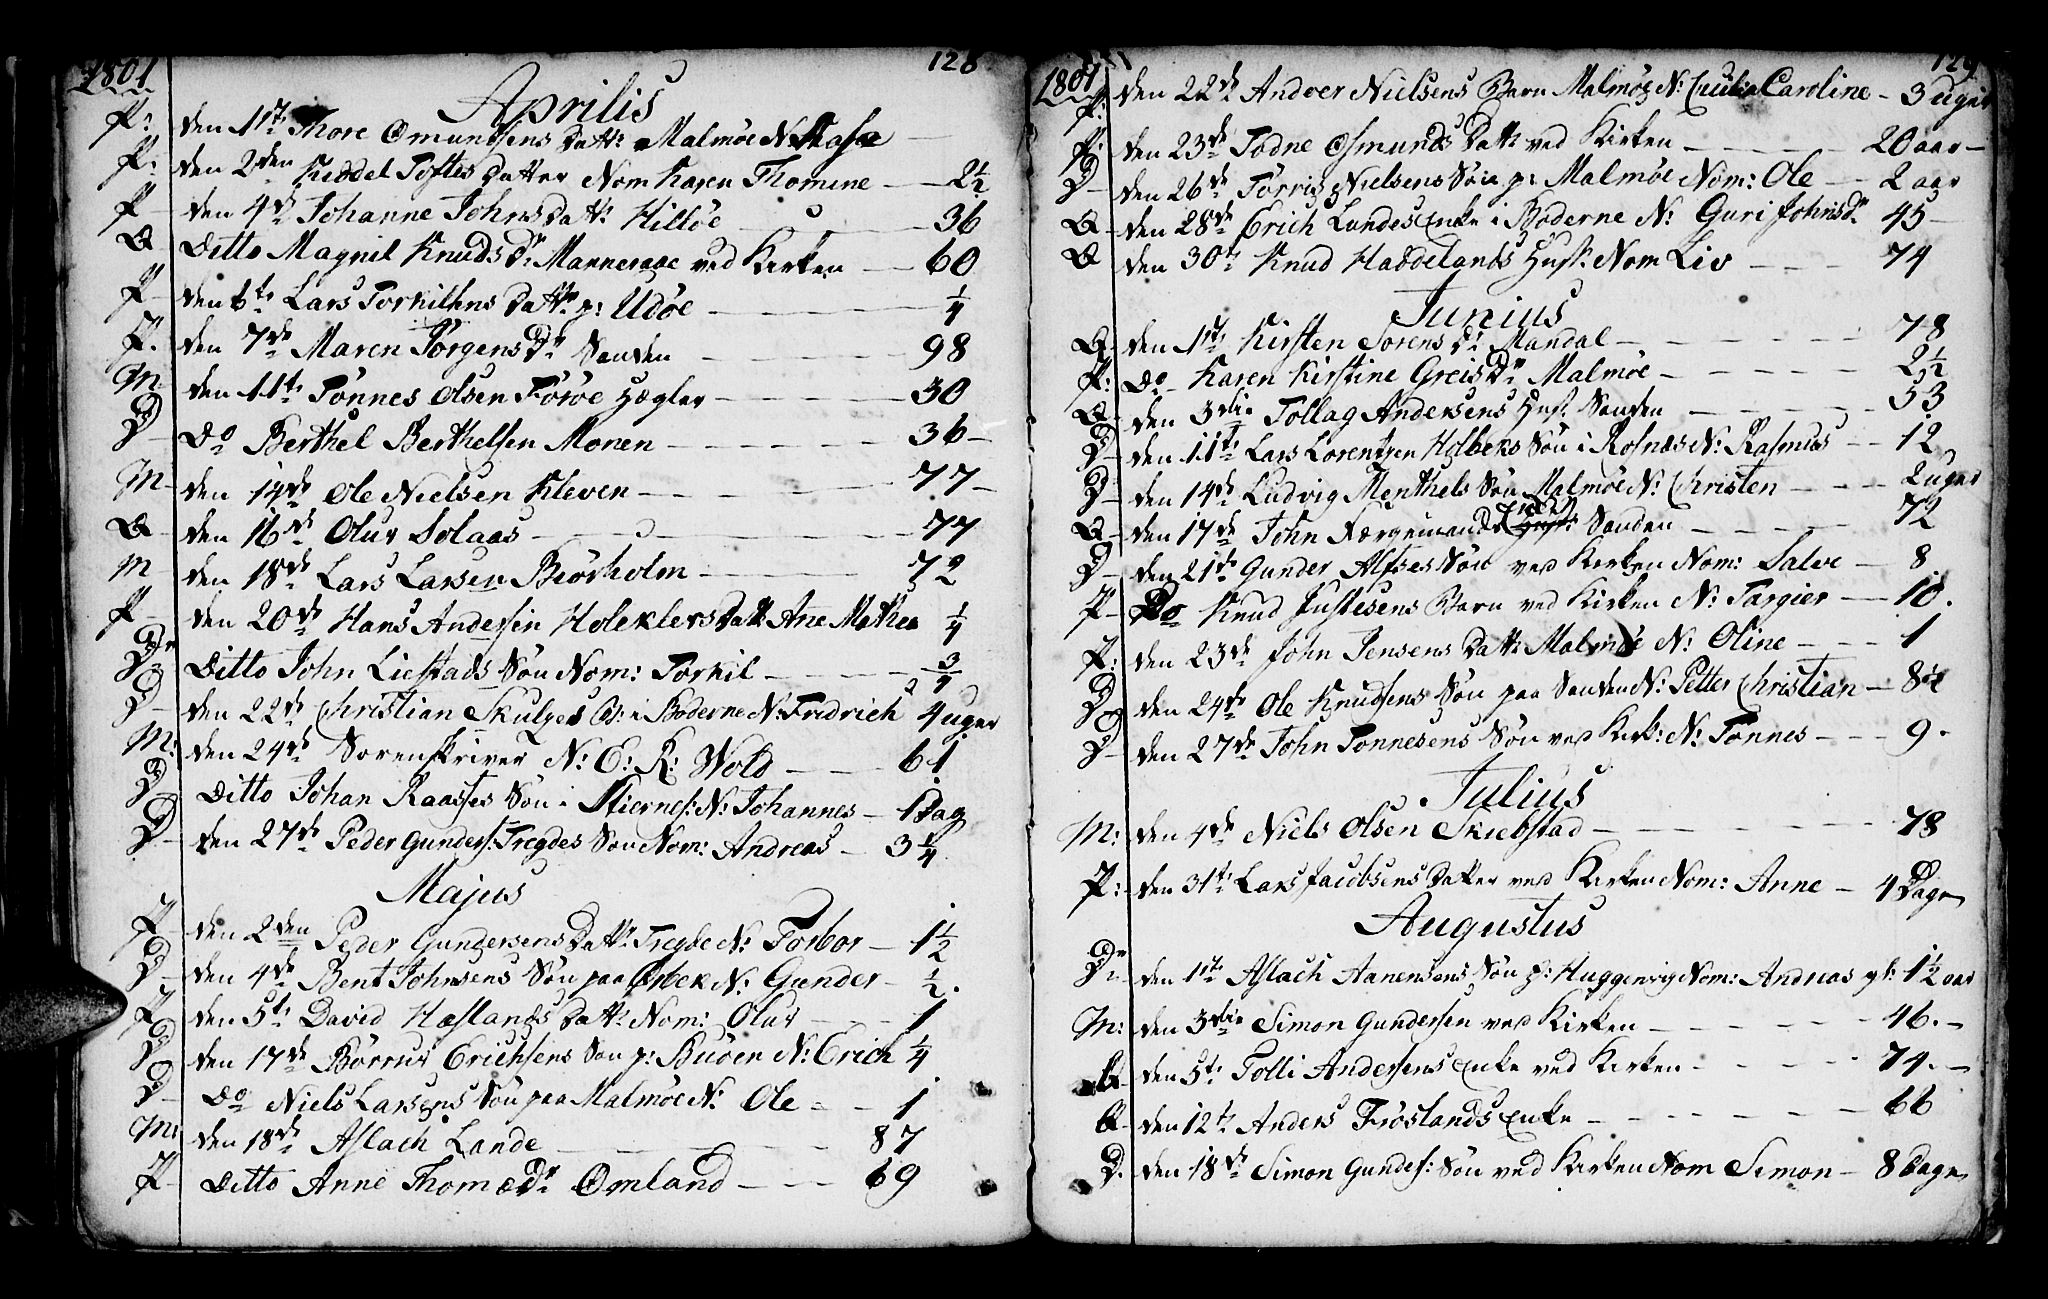 1801
128
Aprilis
P: den 1ste Thore Omundsens Datt: Malmöe N:
P: den 2den Keddel Toftes Datter Nom Karen Thomine — 2½
P — den 4de Johanne Johns Datt: Hilløe — 36
Q Ditto Magnil Knuds Dr Manneraae ved Kirken — 60
P — den 6te Lars Torkilsens Datter p: Udöe — ¼
P. den 7de Maren Jörgens Dr Sanden — 98
M den 11te Tönnes Olsen Hægler — 30
D — Do Berthel Berthelsen Monen — 36 —
M — den 14de Ole Nielsen Kleven — 77 —
Q — den 16de Olur Solaas — 77
M — den 18de Lars Larsen Beörholm — 72
P — den 20de Hans Andersen Holeklers Datt Ane Mathea ¼
D — Ditto John Liestads Sön Nom: Torkil — ¾
D — den 22de Christian Skulges i Boderne N: Fredrich 4 uger
M: den 24de Sorenskriver N: E: K: Wold — 61
D Ditto Johan Raasses Sön i Stiernes: N: Johannes — 1 Dag
D — den 27de Peder Gunders: Tregdes Sön Nom: Andreas — 3¼
Majus
P — den 2den Peder Gundersens Datt: Tregde N: Torbor — 1½
D — den 4de Bent Johnsens Sön paa N: Gunder — ½.
P den 5te David Hæslands Datt: Nom: Olur — 1
D den 17de Börrur Erichsens Sön p: Buöen N: Erich ¼
D — Do Niels Larsens Sön paa Malmöe N: Ole — 1
M: den 18de Aslach Lande — 87
P — Ditto Anne Thomæ Dr Omland — 69
1801
129
P: den 22de Andver Nielsens Barn Malmöe N: Cecilia Caroline — 3 uger
P. den 23de Todne Osmunds Datt: ved Kirken — 20 aar —
D — den 26de Törris Nielsens Sön p: Malmöe Nom: Ole — 2 aar
Q — den 28de Erich Landes Enke i Boderne N: Guri Johns Dr 45 —
Q den 30te Knud Haddelands Hust: Nom Liv — 74
Junius
Q — den 1ste Kirsten Sorens Dr Mandal — 78
P: Do — Karen Kirstine Greis Dr Malmöe — 2½
Q — den 3die Tollag Andersens Hust: Sanden — 53
D — den 11te Lars Lorentzen Holbeks Sön i Rosnæs N: Rasmus — 12
D — den 14de Ludvig Menthels Sön Malmöe N: Christen — 2 uger
Q — den 17de John Færgemands Sanden — 72
D — den 21de Gunder Alfses Sön ved Kirken Nom: Salve — 8
P — Do Knud Justesens Barn ved Kirken N: Targier — 10.
P: den 23de John Jensens Datt: Malmöe N: Oline — 1
D den 24de Ole Knudsens Sön paa Sanden N: Petter Christian — 8½
D — den 27de John Tonnesens Sön ved Kirk: N: Tonnes — 9.
Julius
M: den 4de Niels Olsen Skiebstad — 78
P: — den 31te Lars Jacobsens Datter ved Kirken Nom: Anne — 4 Dage
Augustus
D — den 1ste Aslach Aanensens Sön p: Huggenvig Nom: Andreas gl: 1½ aar
M: den 3die Simon Gundersen ved Kirken — 46. —
Q — den 5te Tolli Andersens Enke ved Kirken — 74. —
Q — den 12te Anders Fröslands Enke — 66
D. den 18de Simon Gunders: Sön ved Kirken Nom Simon — 8 Dage